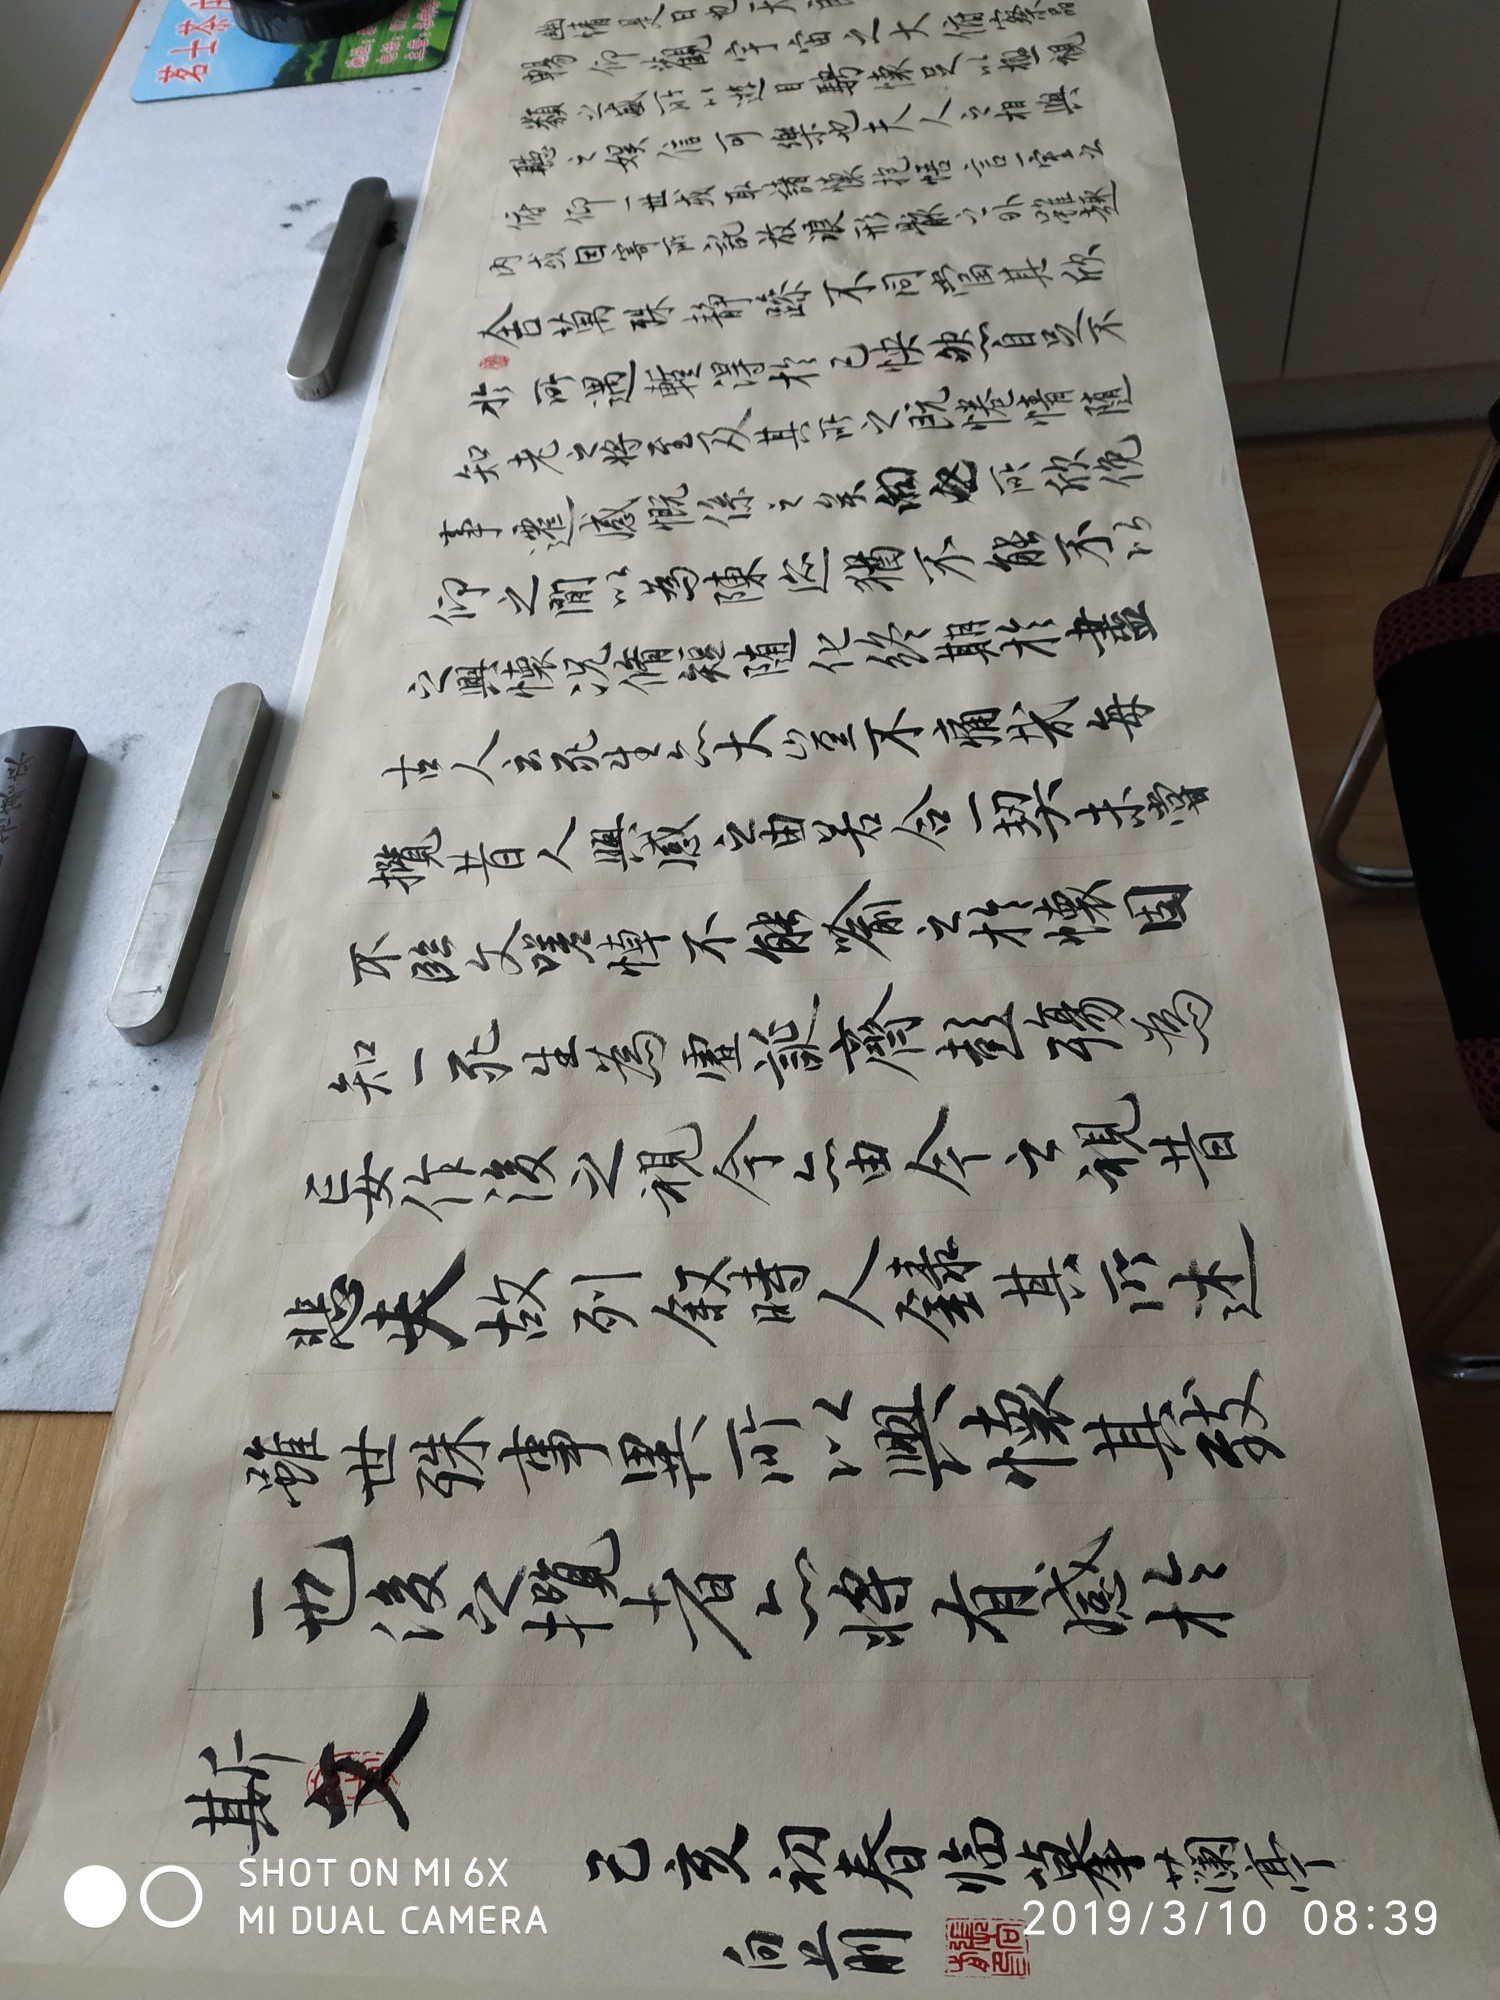 幽情是日也天朗
暢仰觀宇宙之大俯察品
類之盛所以遊目騁懷足以極視
聽之娛信可樂也夫人之相與
俯仰一世或取諸懷抱悟言一室之
內或因寄所託放浪形骸之外雖趣
舍萬殊静躁不同當其欣
於所遇暫得於己快然自足不
知老之將至及其所之既惓情隨
事遷感慨係之矣向之所欣俛
仰之閒以為陳迹猶不能不以
之興懷況脩短隨化終期於盡
古人云死生亦大矣豈不痛哉每
攬昔人興感之由若合一契未嘗
不臨文嗟悼不能喻之於懷固
知一死生為虛誕齊彭殤為
妄作後之視今亦由今之視昔
悲夫故列敘時人錄其所述
雖世殊事異所以興懷其致
一也後之攬者亦將有感於
斯文
己亥初春临摹蘭亭
茗士茶庄
SHOT ON MI 6X
MI DUAL CAMERA
2019/3/10 08:39